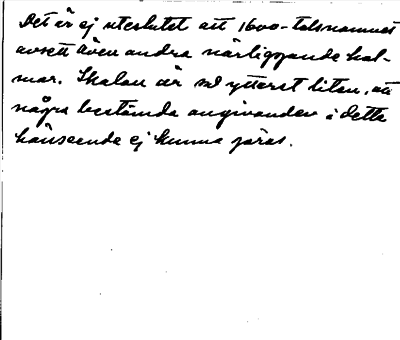 Det är ej uteslutet att 1600-talsnamnet
avsett även andra närliggande hol-
mar. Skalan är så ytterst liten, att
några bestämda angivanden i detta
hänseende ej kunna göras.